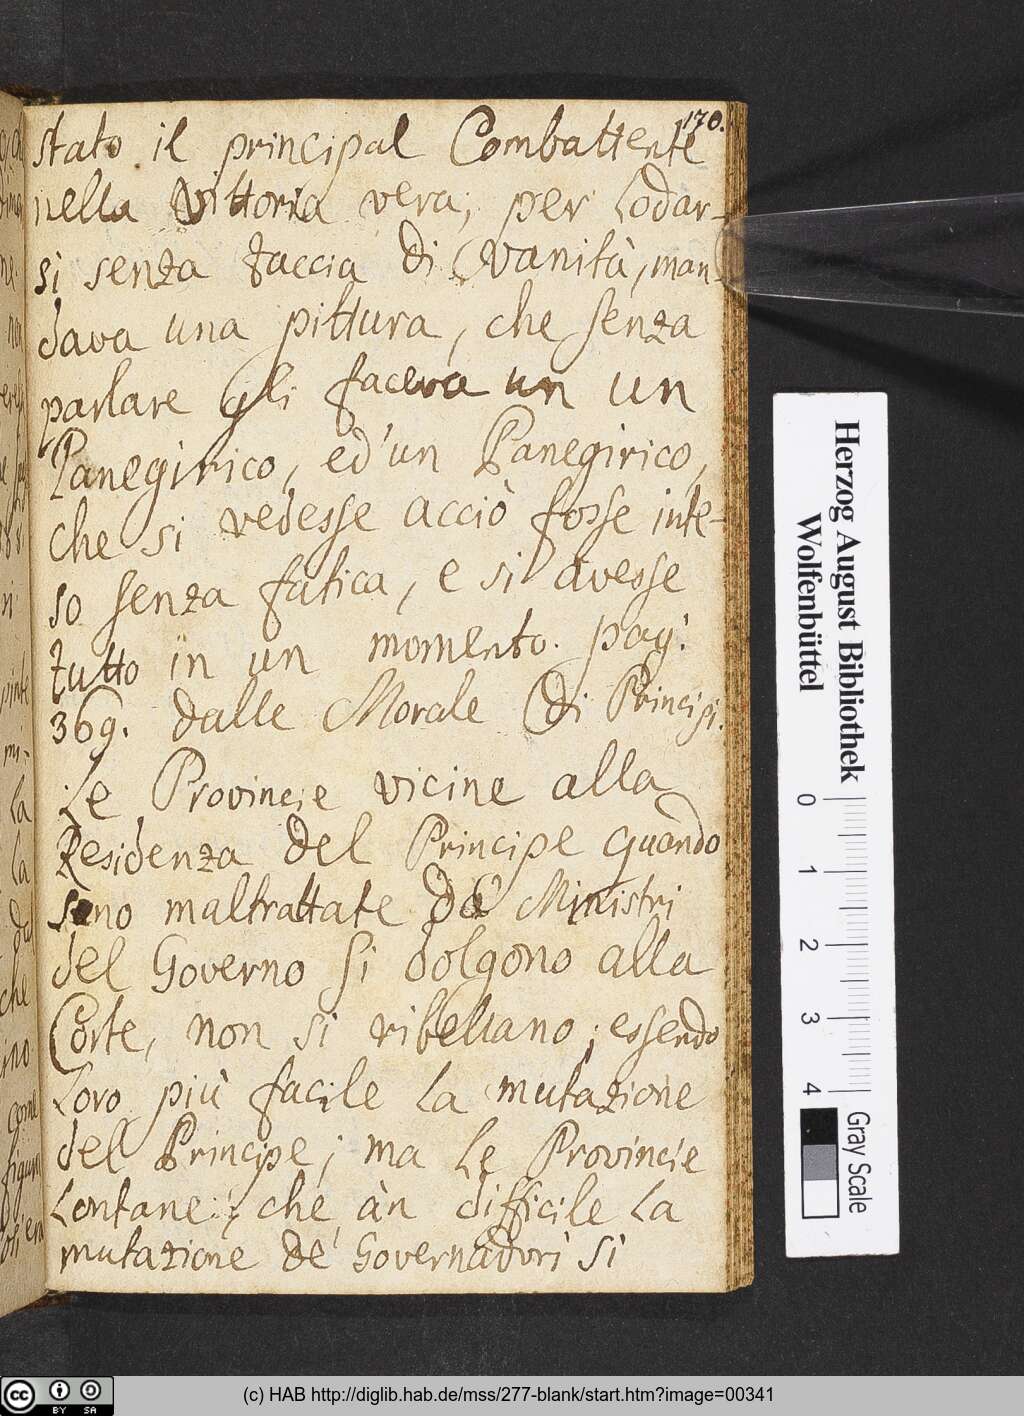 170.
stato il principal Combattente
nella Vittoria vera, per Lodar-
si senza taccia di vanità, man-
dava una pittura, che senza
parlare gli faceva un un
Panegirico, ed'un Panegirico,
che si vedesse acciò fosse inte-
so senza fatica, e si avesse
tutto in un momento. pag:
369. dalle Morale di Principi.
Le Provincie vicine alla
Residenza del Principe quando
sono maltrattate dà Ministri
del Governo si dolgono alla
Corte, non si ribellano; essendo
Loro più facile La mutazione
del Principe; ma Le Provincie
Lontane; che àn difficile La
mutazione de' Governadori si
Herzog August Bibliothek
Wolfenbüttel
0 1 2 3 4
Gray Scale
cc BY SA
(c) HAB http://diglib.hab.de/mss/277-blank/start.htm?image=00341